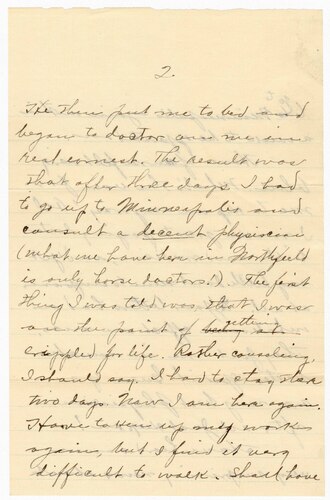 2.
He then put me to bed and
began to doctor on me in
real earnest. The result was
that after three days I had
to go up to Minneapolis and
consult a decent physician
(what we have here in Northfield
is only horse doctors!). The first
thing I was told was that I was
on the point of getting
crippled for life. Rather consoling,
I should say. I had to stay there
two days. Now I am here again.
Have to take up my works
again, but I find it very
difficult to walk. Shall have